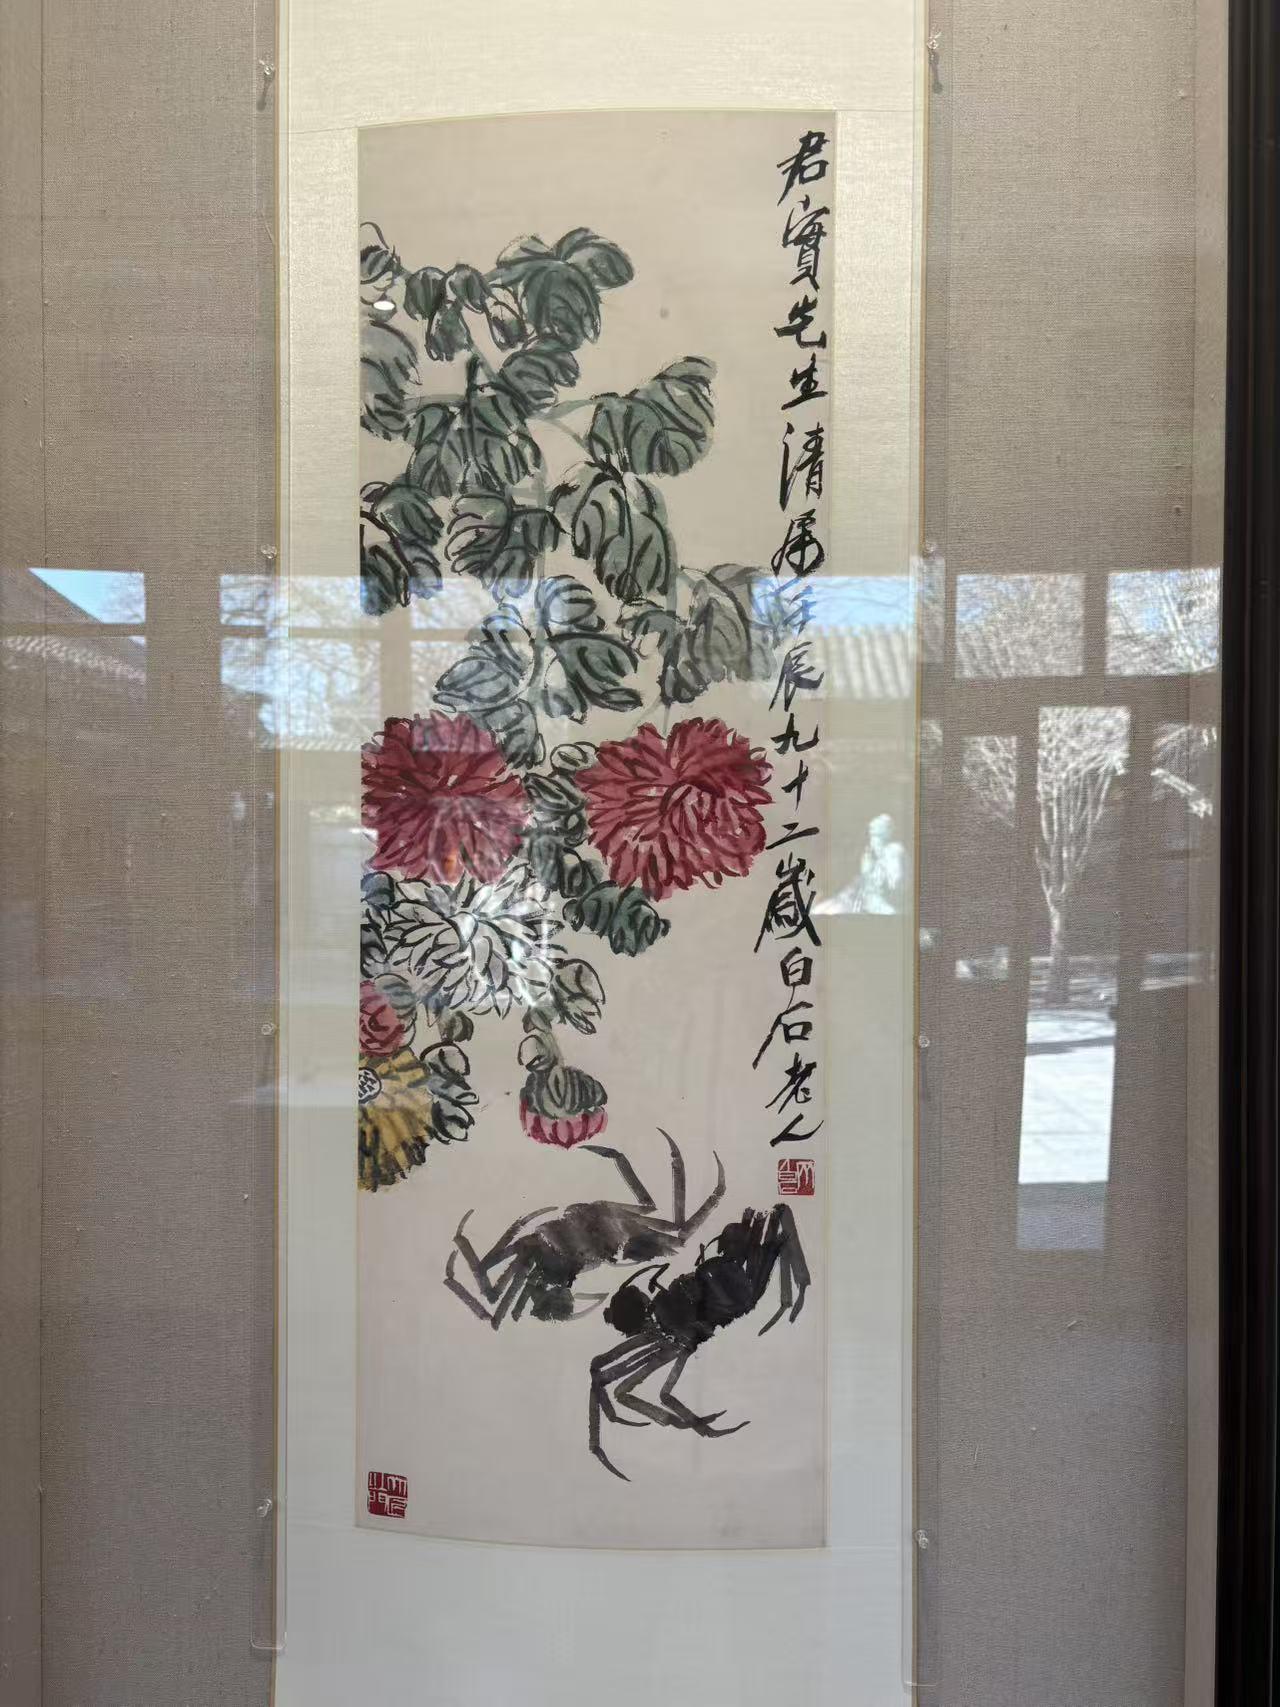 君實先生清屬壬辰九十二歲白石老人